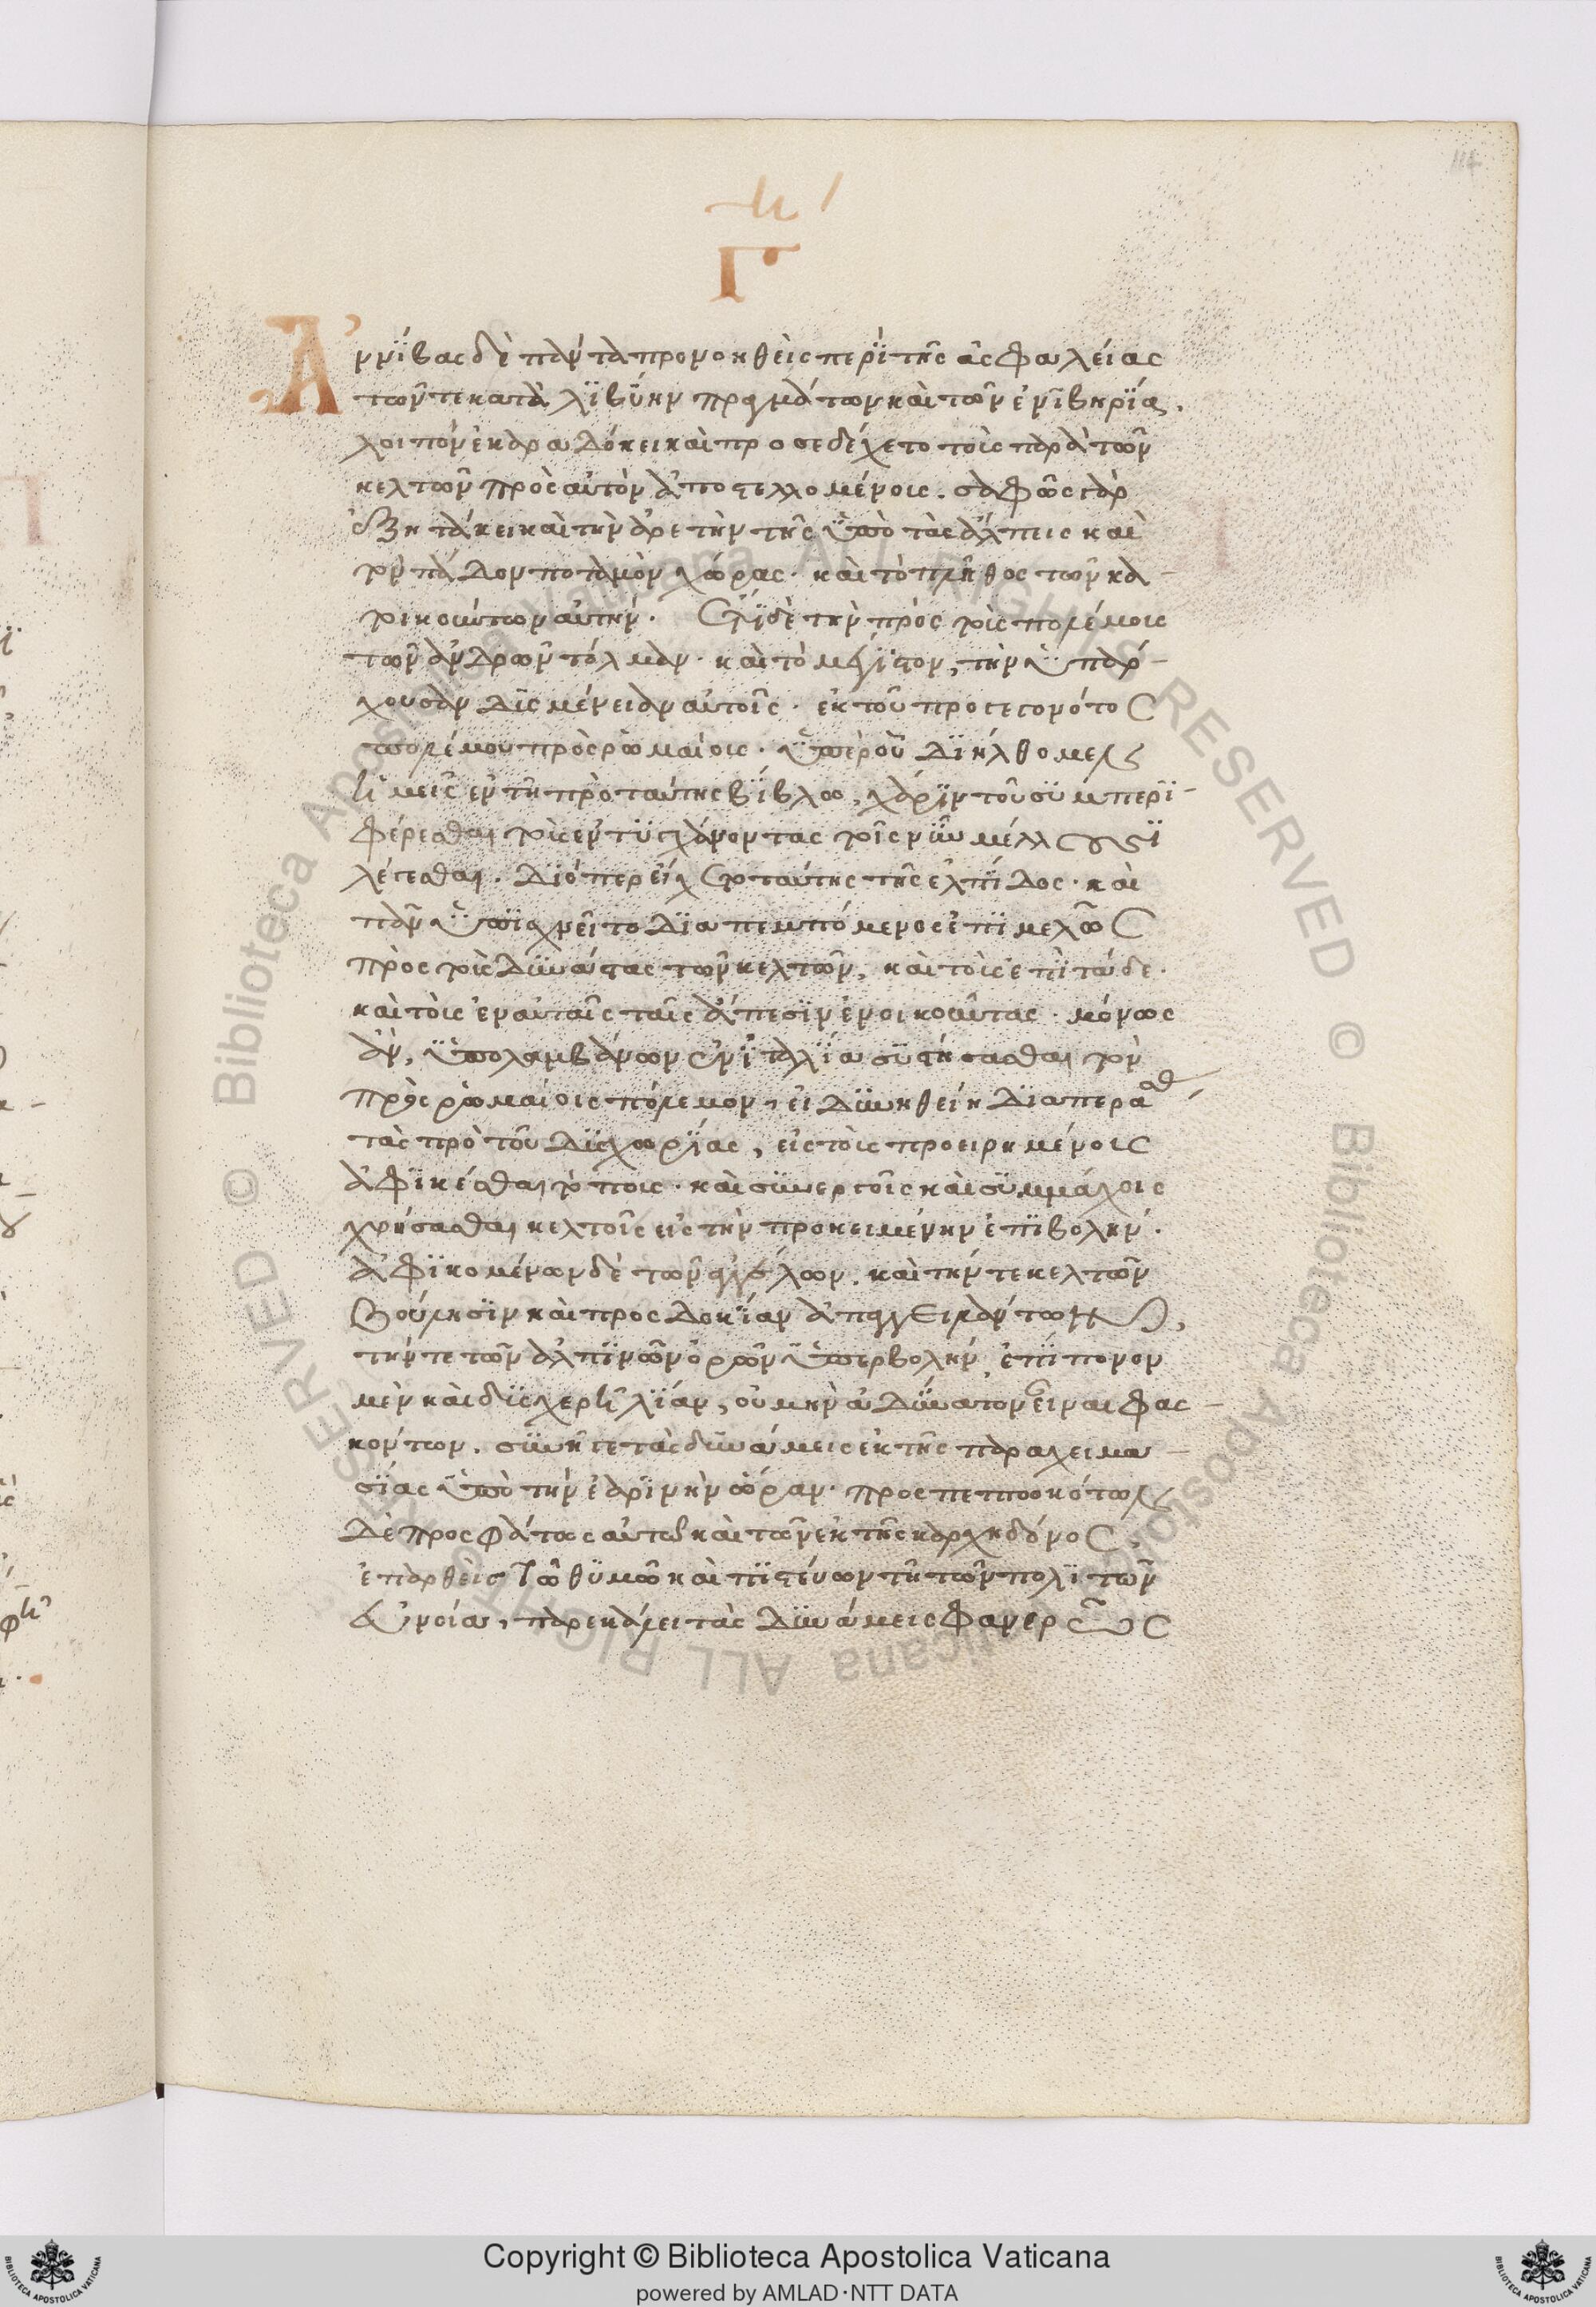 114
Γ
Ἀννΐβας δὲ πάντα προνοηθεὶς περῒ τῆς ἀσφαλείας
τῶν τε κατὰ λϊβΰην πραγμάτων καὶ τῶν ἐν ϊβηρΐα.
λοιπὸν ἐκαραδόκει καὶ προσεδέχετο τοὺς παρὰ τῶν
κελτῶν πρὸς αὐτὸν ἀποστελλομένους. σαφῶς γὰρ
ἐξητάκει καὶ τὴν ἀρετὴν τῆς ὑπὸ τὰς ἄλπεις καὶ
τὸν πάδον ποταμὸν χώρας. καὶ τὸ πλῆθος τῶν κα-
τοικούντων αὐτήν. ἔτϊ δὲ τὴν πρὸς τοὺς πολέμους
τῶν ἀνδρῶν τόλμαν. καὶ τὸ μέγϊστον, τὴν ὑπάρ-
χουσαν δϋσμένειαν αὐτοῖς. ἐκ τοῦ προγεγονότος
πολέμου πρὸς ρωμαίους. ὑπὲρ οὗ διήλθομεν
ἡμεῖς ἐν τῆ πρὸ ταύτης βΐβλω, χάρϊν τοῦ συμπερϊ-
φέρεσθαι τοὺς ἐντϋγχάνοντας τοῖς νῦν μέλλουσϊ
λέγεσθαι. διόπερ εἴχετο ταύτης τῆς ἐλπΐδος. καὶ
πᾶν ὑπισχνεῖτο δϊαπεμπόμενος ἐπϊμελῶς
πρὸς τοὺς δϋνάστας τῶν κελτῶν, καὶ τοὺς ἐπὶ τάδε.
καὶ τοὺς ἐν αὐταῖς ταῖς ἄλπεσϊν ἐνοικοῦντας. μόνως
ἂν, ὑπολαμβάνων ἐν ϊταλΐα συστήσασθαι τὸν
πρὸς ρωμαίους πόλεμον, εἰ δϋνηθείη δϊαπεράσας
τὰς πρὸ τοῦ δϋσχωρΐας, εἰς τοὺς προειρημένους
ἀφϊκέσθαι τόπους. καὶ συνεργοῖς καὶ συμμάχοις
χρήσασθαι κελτοῖς εἰς τὴν προκειμένην ἐπϊβολήν.
ἀφϊκομένων δὲ τῶν ἀγγέλων. καὶ τήν τε κελτῶν
βούλησϊν καὶ προσδοκΐαν ἀπαγγειλάντων,
τήν τε τῶν ἀλπϊνῶν ὀρῶν ὑπερβολήν, ἐπΐπονον
μὲν καὶ δϋσχερῆ λΐαν, οὐ μὴν ἀδΰνατον εἶναι φασ-
κόντων. συνῆγε τὰς δυνάμεις ἐκ τῆς παραχειμα-
σΐας ὑπὸ τὴν ἐαρϊνὴν ὥραν. προσπεπτωκότων
δὲ προσφάτως αὐτῶ καὶ τῶν ἐκ τῆς καρχηδόνος,
ἐπαρθεὶς τῶ θυμῶ καὶ πϊστεύων τῆ τῶν πολϊτῶν
εὐνοία, παρεκάλει τὰς δυνάμεις φανερῶς
Copyright © Biblioteca Apostolica Vaticana
powered by AMLAD·NTT DATA